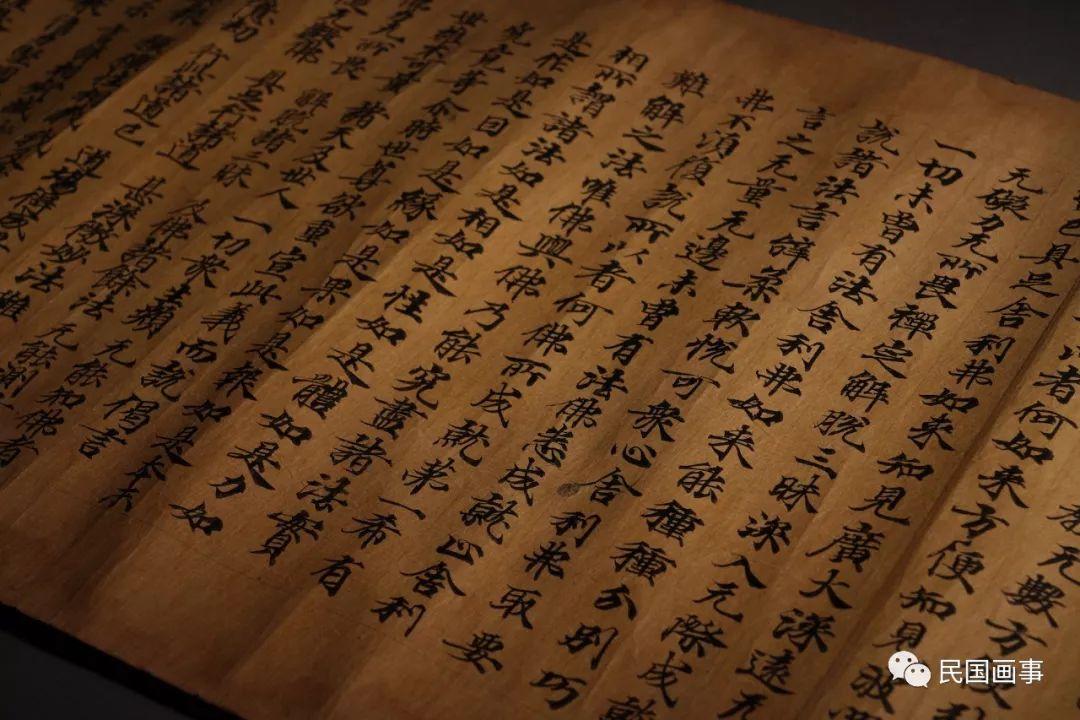 无數方便
者何如来方便知見波
已具足舍利弗如来知見廣大深遠无
无礙力无所畏禪定解脫三昧深入无際成就
一切未曾有法舍利弗如来能種種分別巧
說諸法言辞柔軟悅可衆心舍利弗取要
言之无量无邊未曾有法佛悉成就止舍利
弗不湏復說所以者何佛所成就第一希有
難解之法唯佛與佛乃能究盡諸法實
相所謂諸法如是相如是性如是體如是力如
是作如是因如是緣如是果如是報如是本末
究竟等尒時世尊欲重宣此義而說偈言
世雄不可量 諸天及世人 一切衆生類 无能知佛者
佛力无所畏 解脫諸三昧 及佛諸餘法 无能測
具足行諸道 甚深微妙法 難
億劫 行此諸道已 道場得成
民国画事